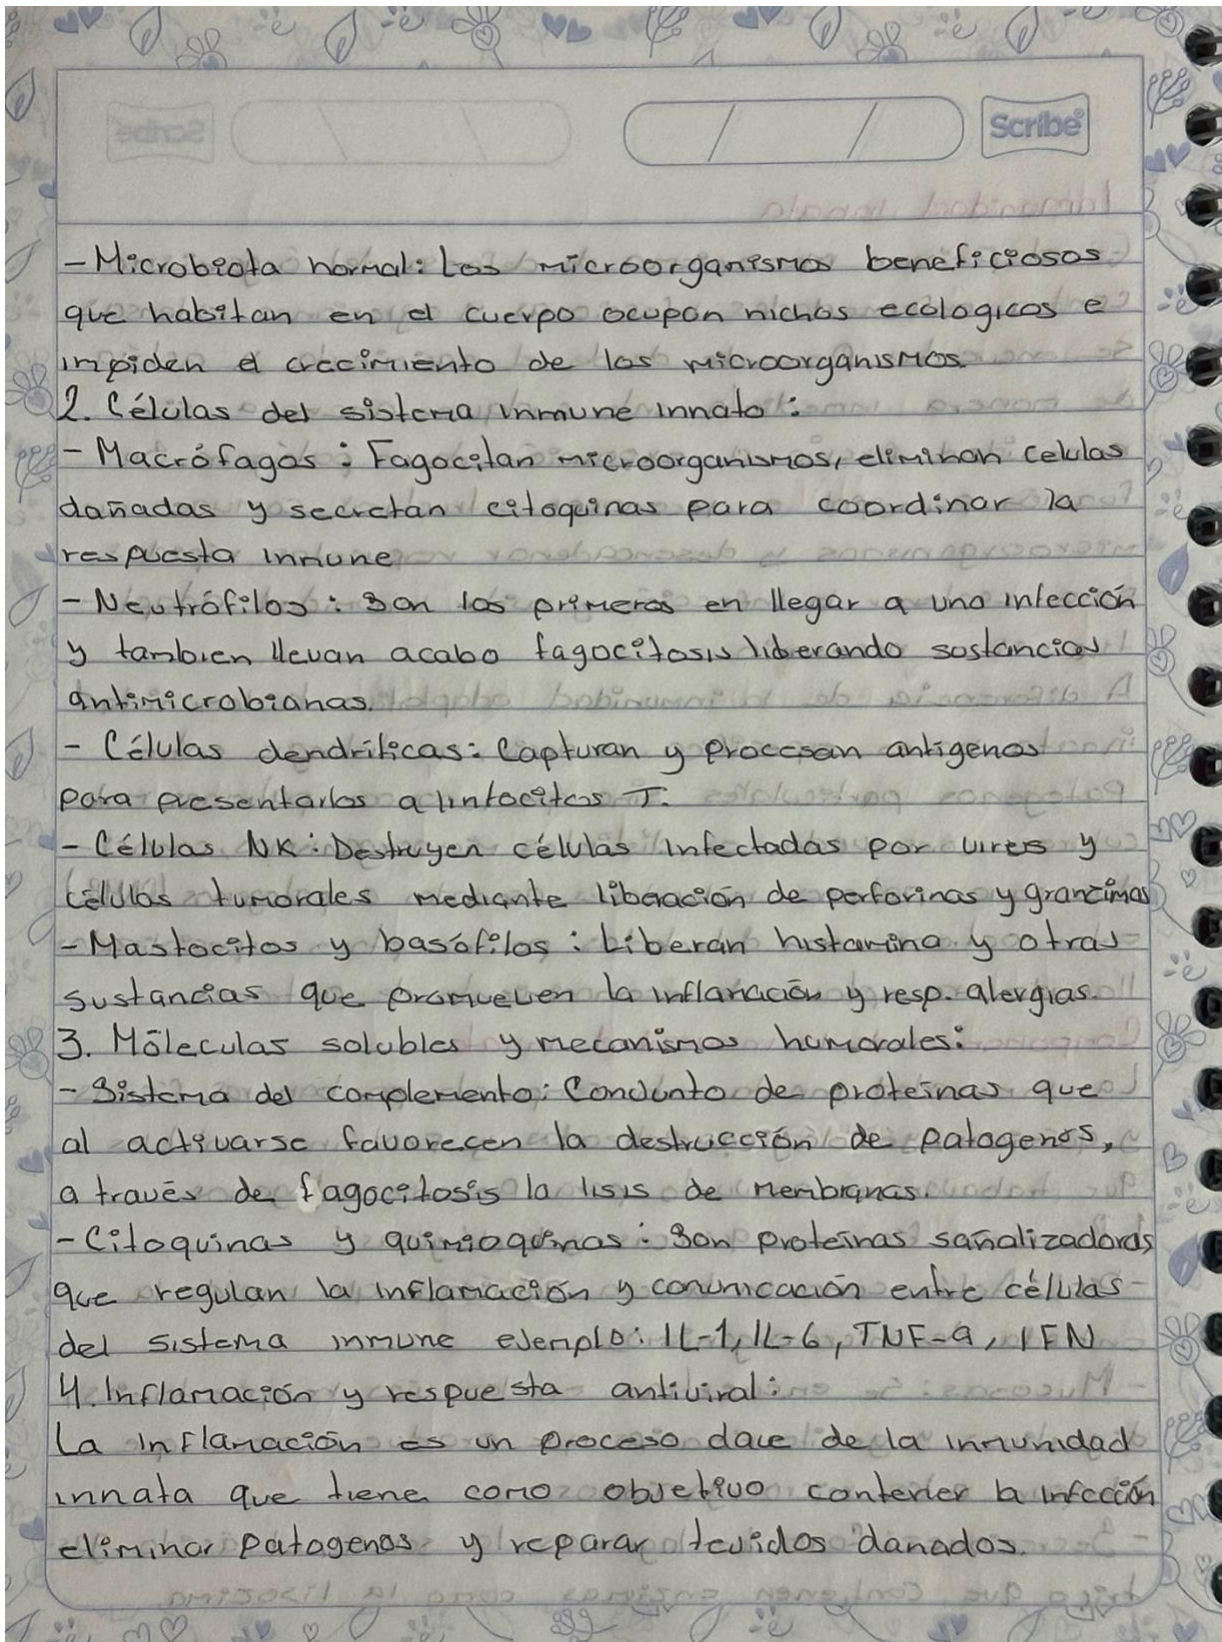 Scribe
- Microbiota normal: Los microorganismos beneficiosos
que habitan en el cuerpo ocupan nichos ecologicos e
impiden el crecimiento de los microorganismos.
2. Células del sistema inmune innato:
- Macrófagos: Fagocitan microorganismos, eliminan celulas
dañadas y secretan citoquinas para coordinar la
respuesta inmune
- Neutrófilos: Son los primeros en llegar a una infección
y tambien llevan acabo fagocitosis liberando sustancias
antimicrobianas.
- Células dendriticas: Capturan y procesan antigenos
para presentarlos a linfocitos T.
- Células NK: Destruyen células infectadas por vires y
células tumorales mediante liberación de perforinas y granzimas
- Mastocitos y basófilos: Liberan histamina y otras
sustancias que promueven la inflamación y resp. alergias.
3. Móleculas solubles y mecanismos humorales:
- Sistema del complemento: Condunto de proteínas que
al activarse favorecen la destrucción de patogenos,
a través de fagocitosis la lisis de membranas.
- Citoquinas y quimioquinas: Son proteínas sañalizadoras
que regulan la inflamación y comunicación entre células
del sistema inmune ejemplo: IL-1, IL-6, TNF-a, IFN
4. Inflamación y respuesta antiviral:
La inflamación es un proceso dave de la inmunidad
innata que tiene como objetivo contener la infección
eliminar patogenos y reparar tejidos danados.